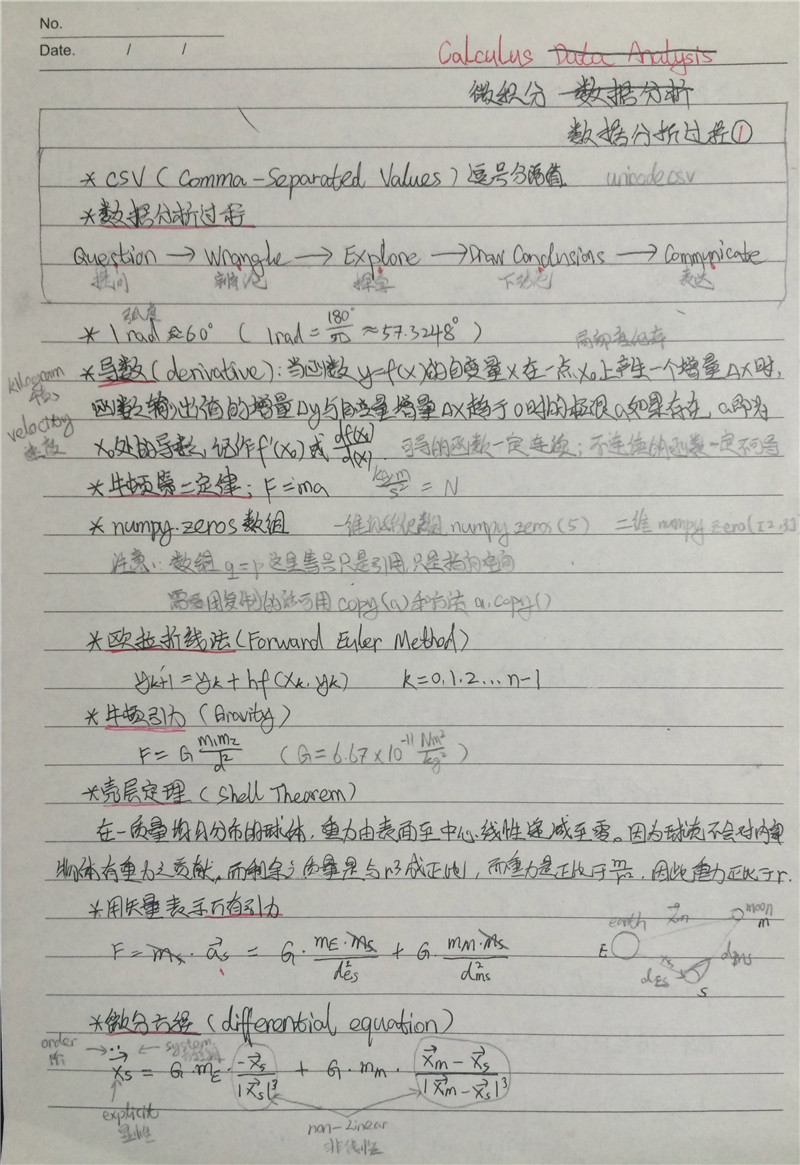 No.
Date. / /
Calculus Data Analysis
微积分 数据分析
数据分析过程①
* CSV ( Comma-Separated Values ) 逗号分隔值 unicodecsv
* 数据分析过程
Question → Wrangle → Explore → Draw Conclusions → Communicate
提问 探索 下结论 表达
弧度
* 1 rad ≈ 60° ( 1rad = 180°/π ≈ 57.3248° )
kilogram
velocity
速度
* 导数(derivative): 当函数 y=f(x)的自变量x在一点x₀上产生一个增量Δx时,
函数输出值的增量Δy与自变量增量Δx趋于0时的极限a如果存在, a即为
x₀处的导数, 记作f'(x₀)或 df(x₀)/d(x). 可导的函数一定连续; 不连续的函数一定不可导
* 牛顿第二定律; F=ma kg·m/s² = N
* numpy.zeros 数组 一维 numpy zeros(5) 二维 numpy zero([2,3])
注意: 数组 q=p 这里等号只是引用只是指向空间
需要用复制的话可用 copy(a) 和方法 a.copy()
* 欧拉折线法(Forward Euler Method)
yk+1 = yk + hf(xk, yk) k=0,1,2...n-1
* 牛顿引力 (Gravity)
F= G m₁m₂/d² ( G=6.67×10⁻¹¹ Nm²/kg² )
* 壳层定理 (Shell Theorem)
在一质量均匀分布的球体, 重力由表面至中心线性递减至零。因为球壳不会对内部
物体有重力之贡献, 而剩余之质量是与r³成正比, 而重力是正比于m/r², 因此重力正比于r.
* 用矢量表示万有引力
F = ms · as = G · mE·ms/d²es + G · mm·ms/d²ms
earth
E
xm
moon
m
xs
dES
dms
S
* 微分方程 (differential equation)
order
阶
system
xs = G·mE · -xs/|xs|³ + G·mm · xm - xs/|xm - xs|³
explicit
显性
non-linear
非线性